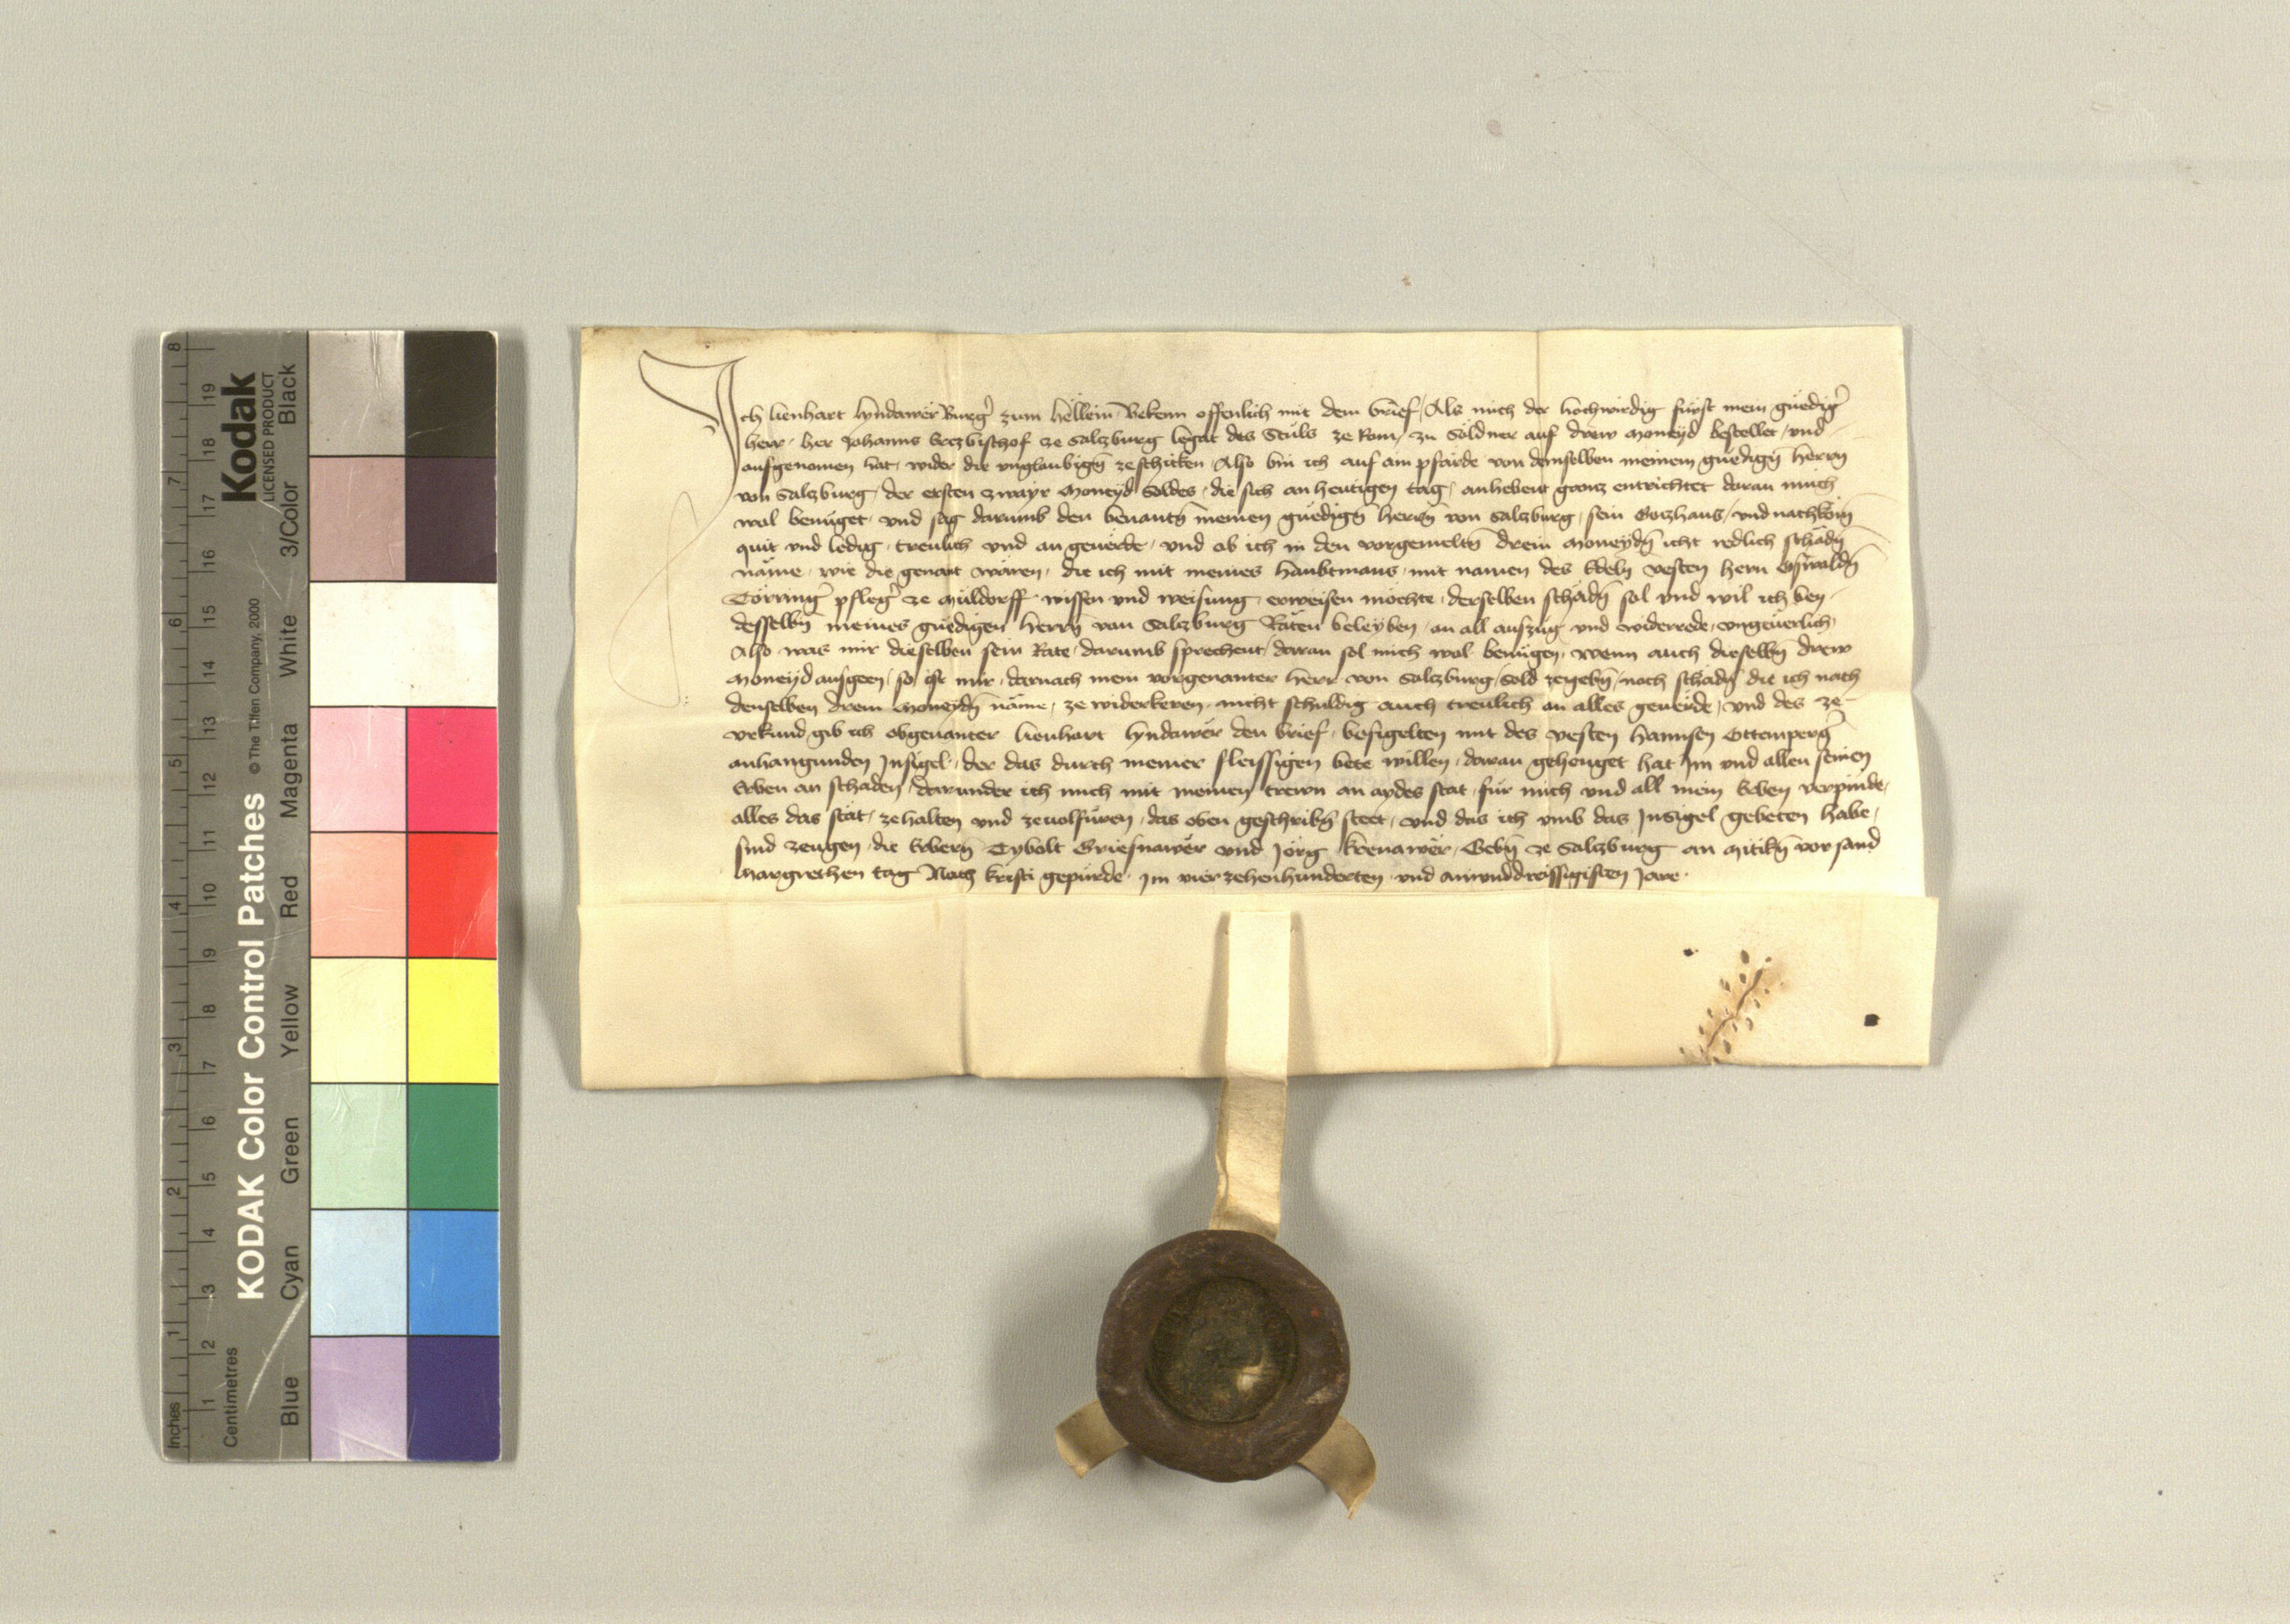 Ich lienhart lyndawer Burg̕ zum hellein Bekenn offenlich mit dem brief / Als mich der hochwirdig fürst mein gnedig̕
herr / her Johanns Erczbischof ze Salczburg legat des Stuls ze Rom / zu Soldner auf drew moneyd bestellet / vnd
aufgenomen hat / wider die vnglaubign̄ zeschicken / Also bin ich auf ain pfärde von demselben meinem gnedign̄ herrn̄
von Salczburg / der ersten zwayr moneyd Soldes / die sich an heutigen tag / anhebent gancz entrichtet daran mich
wol benüget / vnd sag darumb den benantn̄ meinen gnedign̄ herrn̄ von Salczburg / sein Gotzhaus / vnd nachkom̄
quit vnd ledig / treulich vnd an geuerde / vnd ob ich in den vorgemeltn̄ drein moneydn̄ icht redlich schädn̄
näme / wie die genant wären / die ich mit meines haubtmans / mit namen des Edeln vesten hern Oswaldn̄
Törring̕ pfleg̕ ze Müldorff / wissen vnd weisung / erweisen möchte / derselben schädn̄ sol vnd wil ich ben
desselbn̄ meines gnedigen herrn̄ von Salczburg Räten beleyben / an all auszüg vnd widerrede / vngeuerlich /
Also was mir dieselben sein Rate / darumb sprechent / daran sol mich wol benügen / wenn auch dieselbn̄ drew
moneyd ausgeen / so ist mir / darnach mein vorgenanter herr von Salczburg / Sold zegebn̄ / noch schädn̄ die ich nach
denselben drein moneydn̄ näme / ze widerkeren / nicht schuldig auch treulich an alles geuerde / vnd des ze
vrkund gib ich obgenanter lienhart lyndawer den brief / besigelten mit des vesten Hannsen Ottemperg̕
anhangunden Insigel / der das durch meiner fleissigen bete willen / daran gehenget hat Im vnd allen seinen
Erben an schaden / darunder ich mich mit meinen trewn an aydes stat / für mich vnd all mein Erben verpinde /
alles das stät / ze halten vnd zeuolfüren / das oben geschribn̄ steet / vnd das ich vmb das Insigel gebeten habe /
sind zeugen / die Erbern Tybolt Griesnawer vnd Jorg krenawer / Gebn̄ ze Salczburg an Mitikn̄ vor sand
Margrethen tag Nach kristi gepürde / Im vierzehenhunderten vnd ainunddreissigisten Jare /
KODAK Color Control Patches
© The Tiffen Company, 2000
Kodak
LICENSED PRODUCT
Inches
1 2 3 4 5 6 7 8
Centimetres
1 2 3 4 5 6 7 8 9 10 11 12 13 14 15 16 17 18 19
Blue
Cyan
Green
Yellow
Red
Magenta
White
3/Color
Black